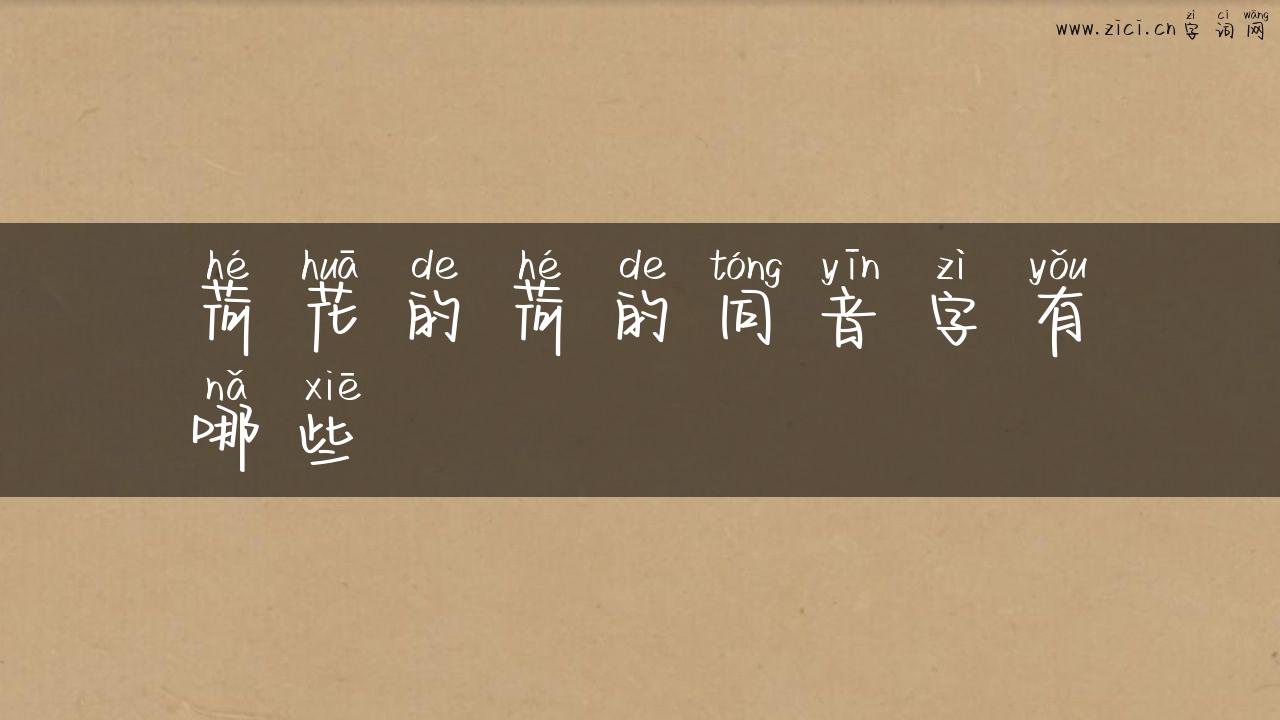 zì cí wǎng
www.zici.cn 字词网
hé huā de hé de tóng yīn zì yǒu
荷花的荷的同音字有
nǎ xiē
哪些